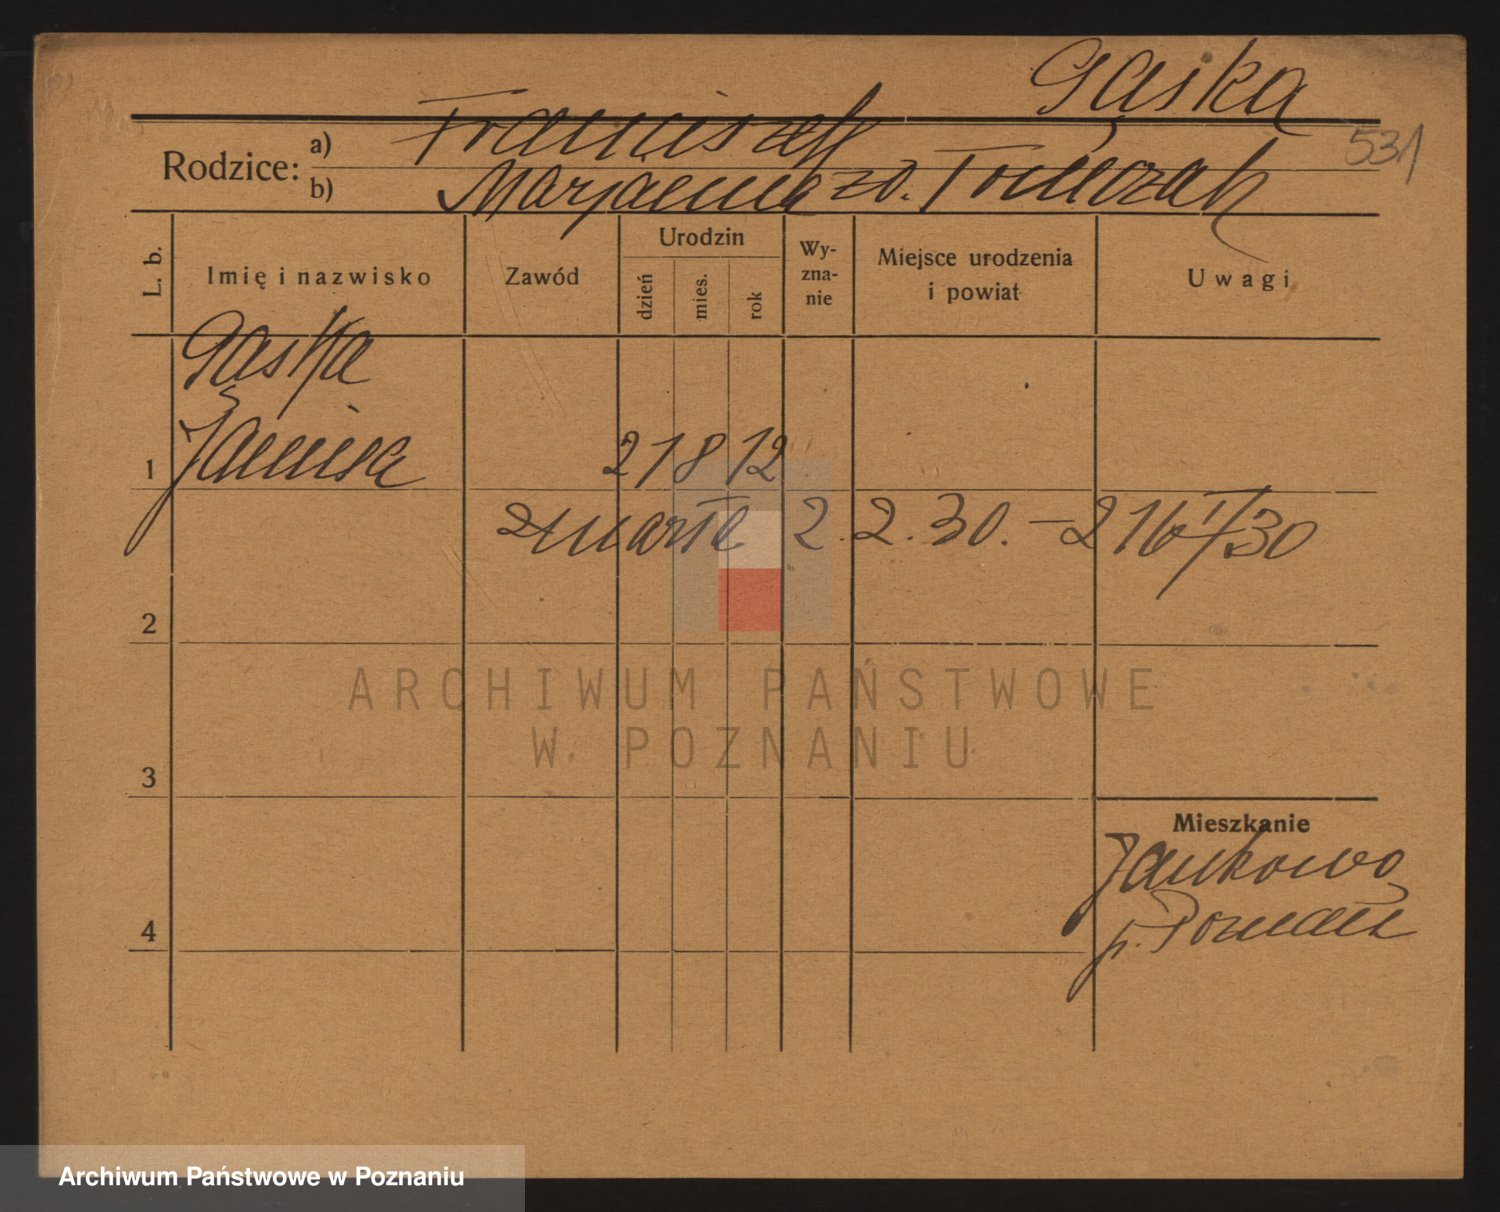 Gąska
531
Rodzice:
a) Franciszek
b) Marjanna zd. Tomczak
L. b.
Imię i nazwisko
Zawód
Urodzin
dzień
mies.
rok
Wy-
zna-
nie
Miejsce urodzenia
i powiat
Uwagi
Gąska
1 Janina 21 8 12
zmarła 2. 2. 30. – 216 I/30
2
3
4
Mieszkanie
Jankowo
p. Poznań
ARCHIWUM PAŃSTWOWE
W POZNANIU
Archiwum Państwowe w Poznaniu